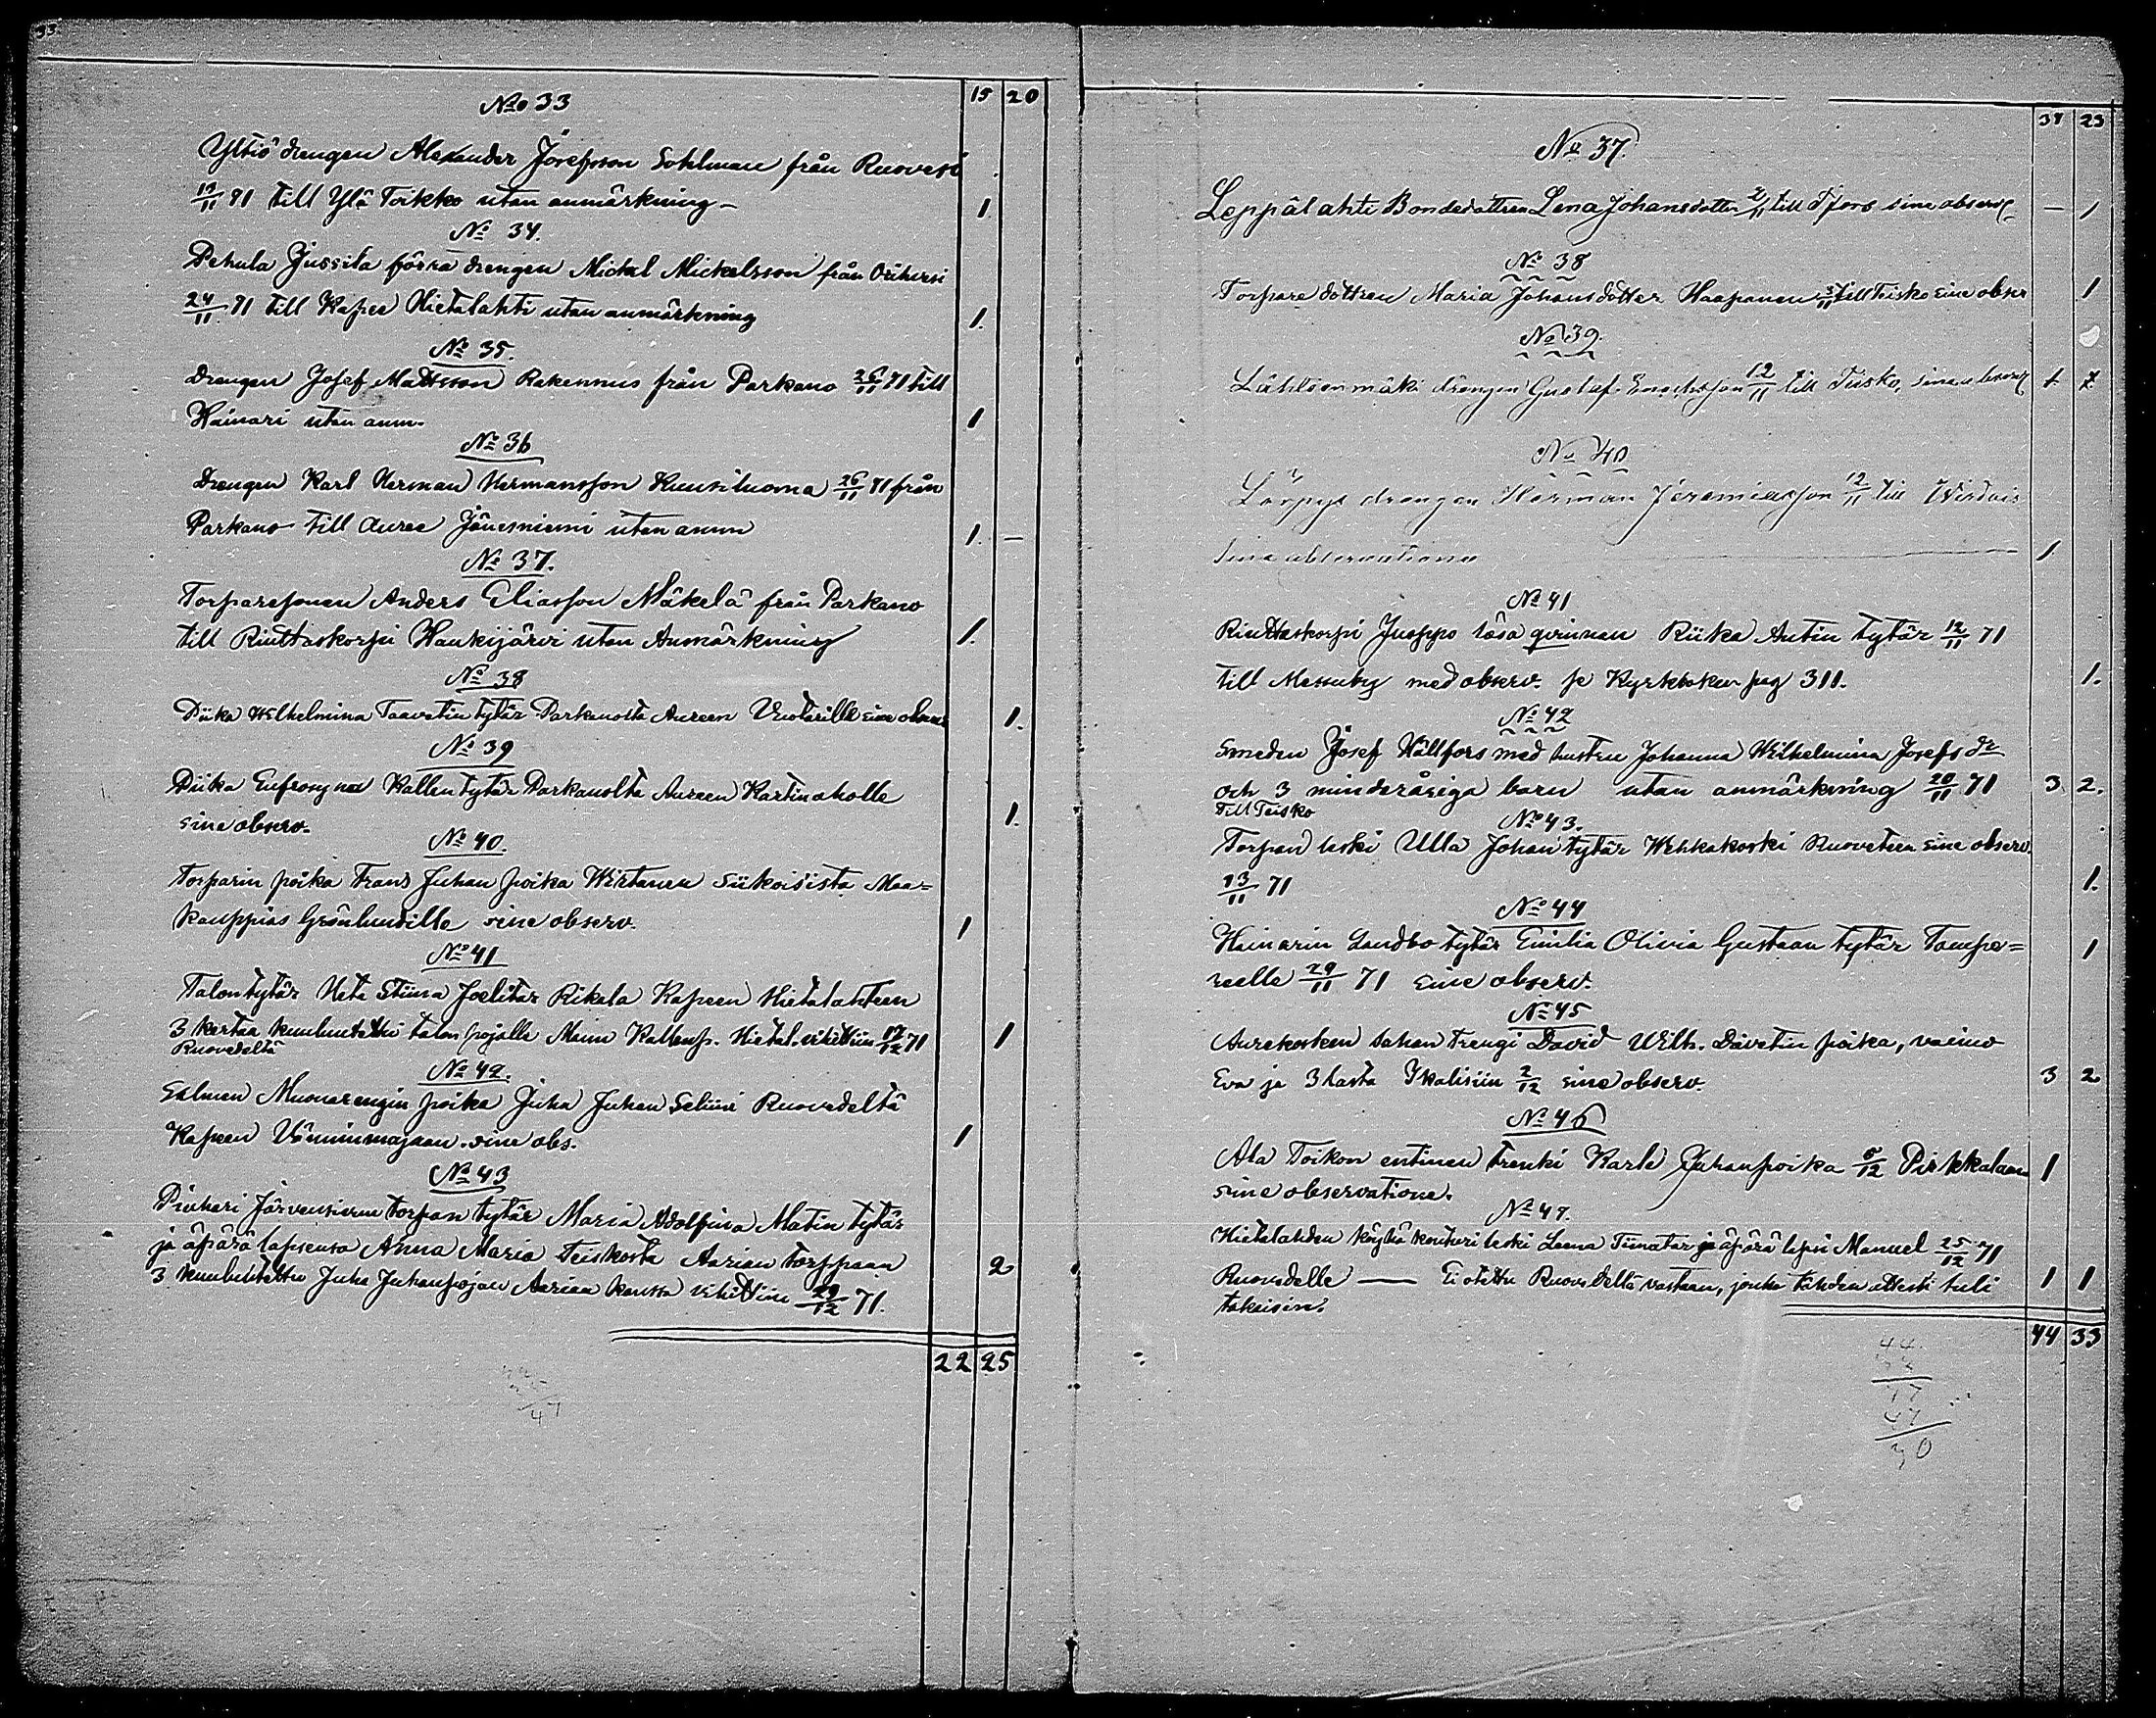 33.
15 20
No 33
Yltiö drengen Alexander Josefsson Sohlman från Ruovesi
19/11 71 till Ylä Toikko utan anmärkning – 1
No 34.
Pehula Jussila förra drengen Mickel Mickelsson från Orihvesi
24/11 71 till Kapee Hietalahti utan anmärkning 1.
No 35.
drengen Josef Mattsson Rakennus från Parkano 26/11 71 till
Hainari utan anm. 1
No 36
drengen Karl Herman Hermansson Kuusiluoma 26/11 71 från
Parkano till Auree Jänesniemi utan anm 1. –
No 37.
Torparesonen Anders Eliasson Mäkelä från Parkano
till Riuttaskorpi Haukijärvi utan Anmärkning 1.
No 38
Piika Wilhelmina Taavetin tytär Parkanosta Aureen sine observ. 1.
No 39
Piika Eufrosyna Kallen tytär Parkanosta Aureen Kartinaholle
sine observ. 1.
No 40.
Torparin poika Frans Juhan poika Wirtanen Siikoisista Maa=
kauppias Grönlundille sine observ. 1
No 41
Talontytär Heta Stiina Joelitär Rikala Kapeen Hietalahteen
3 kertaa kuulutettu talon pojalle Manu Kallenp. Hietal. vihittiin 17/12 71 1
Ruovedeltä
No 42.
Salmen Muonarengin poika Juha Juhan Selini Ruovedeltä
Kapeen Vänninmajaan. sine obs. 1
No 43
Pinhari Järvensivun torpan tytär Maria Adolfina Matin tytär
ja äpärä lapsensa Anna Maria Teiskosta Aarian torppaan 2
3 kuulutettu Juha Juhanpojan Aarian kanssa vihittiin 29/12 71.
22 25
47
37 23
No 37.
Leppälahti Bondedottren Lena Johansdotter 2/11 till sine observ – 1
No 38
Torpare dottren Maria Johansdotter Haapanen 3/11 till Teisko sine obser 1
No 39.
drengen Gustaf Enochsson 12/11 till Teisko, sine observ 1
No 40
drengen Herman Jeremiasson 12/11 till Wirdois
sine observatione 1
No 41
Riuttaskorpi Juoppo lösa qvinnan Riika Antin tytär 12/11 71
till Messuby med observ. se Kyrkboken pag 311. 1.
No 42
Smeden Josef Hällfors med hustru Johanna Wilhelmina Josefs dr
och 3 minderåriga barn utan anmärkning 20/11 71 3 2.
till Teisko
No 43.
Torpan leski Ulla Johan tytär Wehkakoski Ruoveteen sine observ.
13/11 71 1.
No 44
Hainarin Landbo tytär Emilia Olivia Gustaan tytär Tampe=
reelle 29/11 71 sine observ. 1
No 45
Aurekosken sahan trengi David Wilh. Davetin poika, vaimo
Eva ja 3 lasta Ikalisiin 2/12 sine observ. 3 2
No 46
Ala Toikon entinen trenki Karle Juhanpoika 5/12 Pirkkalaan 1
sine observatione.
No 47.
Hietalahden köyhä leski Leena Tiinatar ja äpärä lapsi Manuel 25/12 71
Ruovedelle — Ei otettu Ruovedellä vastaan, jonka tähden attesti tuli 1 1
takaisin.
44 33
44
33
77
47
30